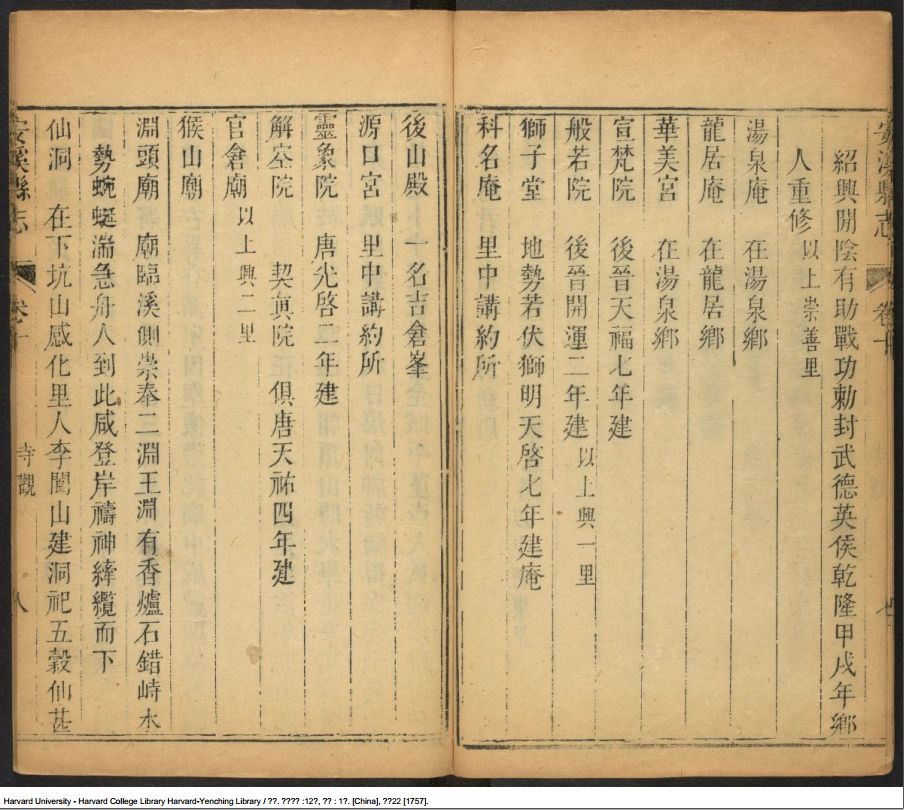 安溪縣志
卷十
七
紹興開陰有助戰功勅封武德英侯乾隆甲戌年鄉
人重修 以上崇善里
湯泉庵 在湯泉鄉
龍居庵 在龍居鄉
華美宮 在湯泉鄉
宣梵院 後晉天福七年建
般若院 後晉開運二年建 以上興一里
獅子堂 地勢若伏獅明天啓七年建庵
科名庵 里中講約所
後山殿 一名吉倉峯
源口宮 里中講約所
靈象院 唐光啓二年建
解空院 契眞院 俱唐天祐四年建
官倉廟 以上興二里
猴山廟
淵頭廟 廟臨溪側崇奉二淵王淵有香爐石錯峙水
勢蜿蜒湍急舟人到此咸登岸禱神縴纜而下
仙洞 在下坑山感化里人李闖山建洞祀五穀仙甚
安溪縣志
卷十
寺觀
八
Harvard University - Harvard College Library Harvard-Yenching Library / ??. ???? :12?, ?? : 1?. [China], ??22 [1757].